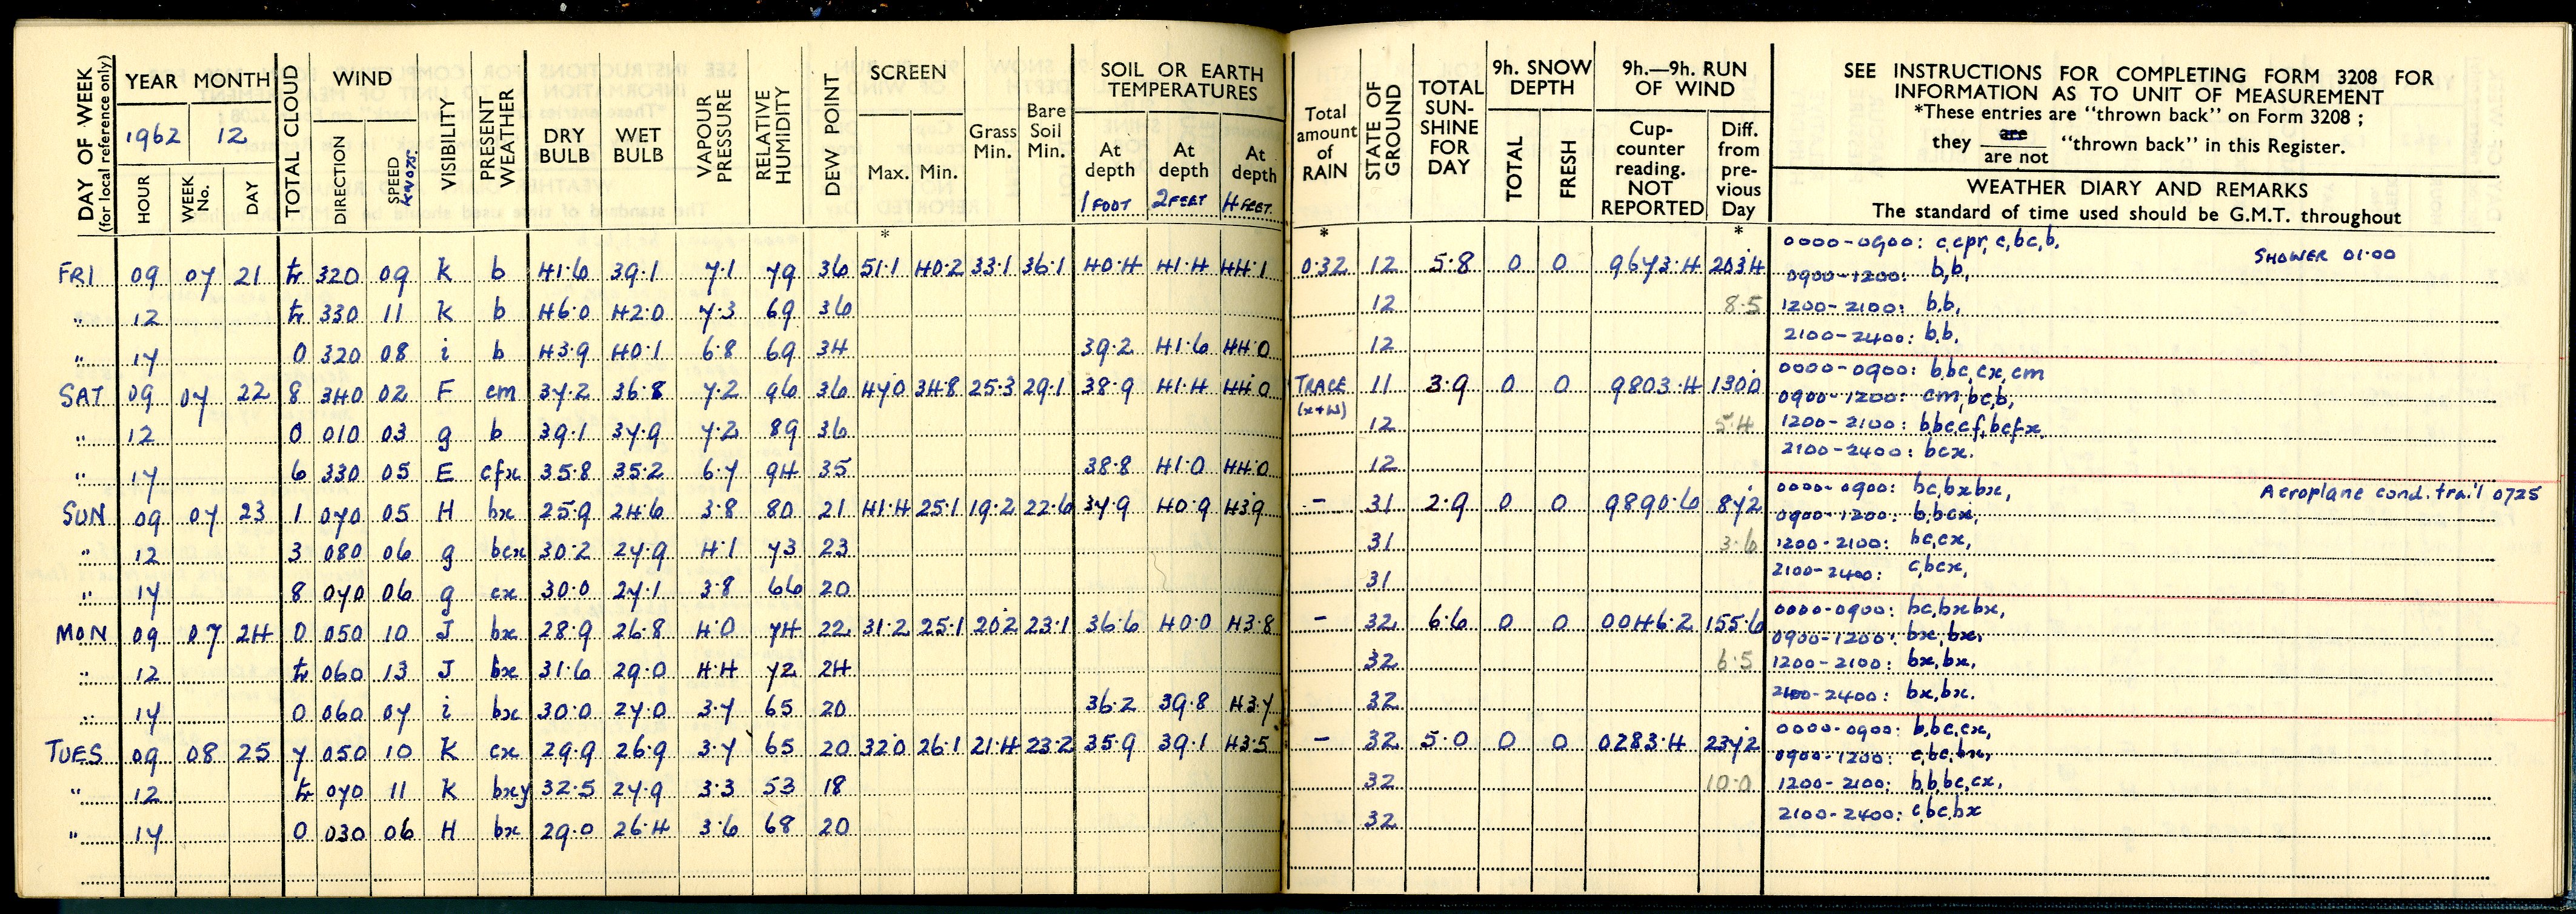 DAY OF WEEK (for local reference only)
YEAR MONTH
1962 12
HOUR WEEK No. DAY
TOTAL CLOUD
WIND
DIRECTION SPEED KNOTS.
VISIBILITY
PRESENT WEATHER
DRY BULB WET BULB
VAPOUR PRESSURE
RELATIVE HUMIDITY
DEW POINT
SCREEN
Max. Min.
Grass Min.
Bare Soil Min.
SOIL OR EARTH TEMPERATURES
At depth 1 FOOT At depth 2 FEET At depth 4 FEET.
Total amount of RAIN
STATE OF GROUND
TOTAL SUN-SHINE FOR DAY
9h. SNOW DEPTH
TOTAL FRESH
9h.—9h. RUN OF WIND
Cup-counter reading. NOT REPORTED
Diff. from pre-vious Day
SEE INSTRUCTIONS FOR COMPLETING FORM 3208 FOR
INFORMATION AS TO UNIT OF MEASUREMENT
*These entries are "thrown back" on Form 3208 ;
they are / are not "thrown back" in this Register.
WEATHER DIARY AND REMARKS
The standard of time used should be G.M.T. throughout
* * *
FRI 09 07 21 tr 320 09 K b 41.6 39.1 7.1 79 36 51.1 40.2 33.1 36.1 40.4 41.4 44.1 0.32 12 5.8 0 0 9673.4 203.4
0000-0900: c,cpr,c,bc,b, SHOWER 01.00
0900-1200: b,b,
" 12 tr 330 11 K b 46.0 42.0 7.3 69 36 12 8.5 1200-2100: b,b,
" 17 0 320 08 i b 43.9 40.1 6.8 69 34 39.2 41.6 44.0 12 2100-2400: b,b.
SAT 09 07 22 8 340 02 F cm 37.2 36.8 7.2 96 36 47.0 34.8 25.3 29.1 38.9 41.4 44.0 TRACE (x+w) 11 3.9 0 0 9803.4 130.0
0000-0900: b,bc,cx,cm
0900-1200: cm,bc,b,
" 12 0 010 03 g b 39.1 37.9 7.2 89 36 12 5.4 1200-2100: bbccf,bcfx,
" 17 6 330 05 E cfx 35.8 35.2 6.7 94 35 38.8 41.0 44.0 12 2100-2400: bcx.
SUN 09 07 23 1 070 05 H bx 25.9 24.6 3.8 80 21 41.4 25.1 19.2 22.6 37.9 40.9 43.9 - 31 2.9 0 0 9890.6 87.2
0000-0900: bc,bxbx, Aeroplane cond. trail 0725
0900-1200: b,bcx,
" 12 3 080 06 g bcx 30.2 27.9 4.1 73 23 31 3.6 1200-2100: bc,cx,
" 17 8 070 06 g cx 30.0 27.1 3.8 66 20 31 2100-2400: c,bcx,
MON 09 07 24 0 050 10 J bx 28.9 26.8 4.0 74 22 31.2 25.1 20.2 23.1 36.6 40.0 43.8 - 32 6.6 0 0 0046.2 155.6
0000-0900: bc,bxbx,
0900-1200: bx,bx,
" 12 tr 060 13 J bx 31.6 29.0 4.4 72 24 32 6.5 1200-2100: bx,bx,
" 17 0 060 07 i bx 30.0 27.0 3.7 65 20 36.2 39.8 43.7 32 2100-2400: bx,bx.
TUES 09 08 25 7 050 10 K cx 29.9 26.9 3.7 65 20 32.0 26.1 21.4 23.2 35.9 39.1 43.5 - 32 5.0 0 0 0283.4 237.2
0000-0900: b,bc,cx,
0900-1200: c,bc,bx,
" 12 tr 070 11 K bxy 32.5 27.9 3.3 53 18 32 10.0 1200-2100: b,b,bc,cx,
" 17 0 030 06 H bx 29.0 26.4 3.6 68 20 32 2100-2400: c,bc,bx